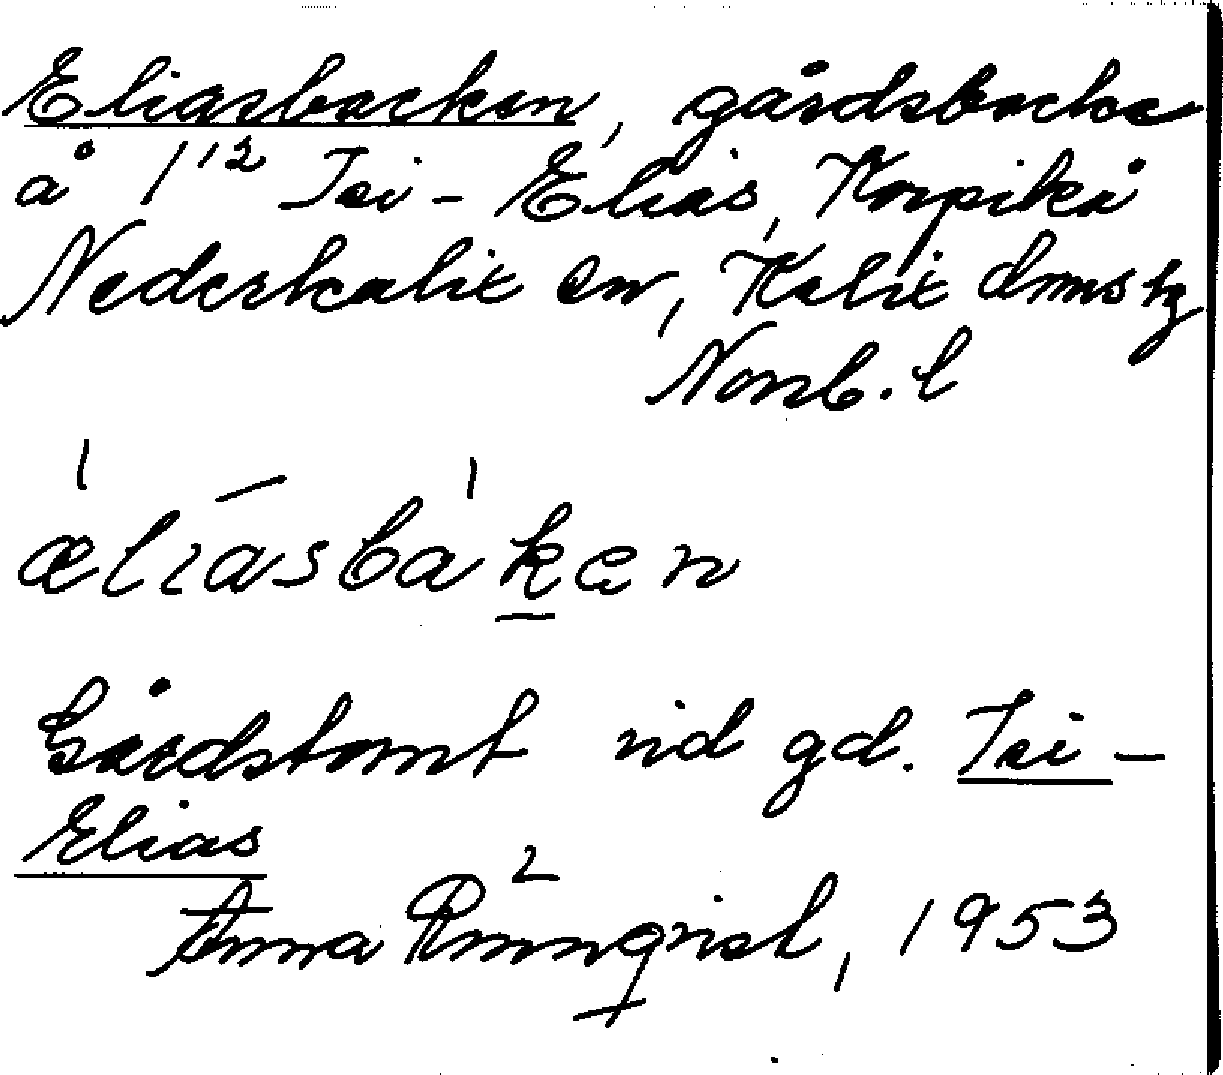 Eliasbacken, gårdsbacke
å 1¹² Isi-Elias, Korpikå
Nederkalix sn, Kalix doms hg
Norrb. l
æliasbakæn
Gårdstomt vid gd. Isi-
Elias
Anna Rönnqvist, 1953